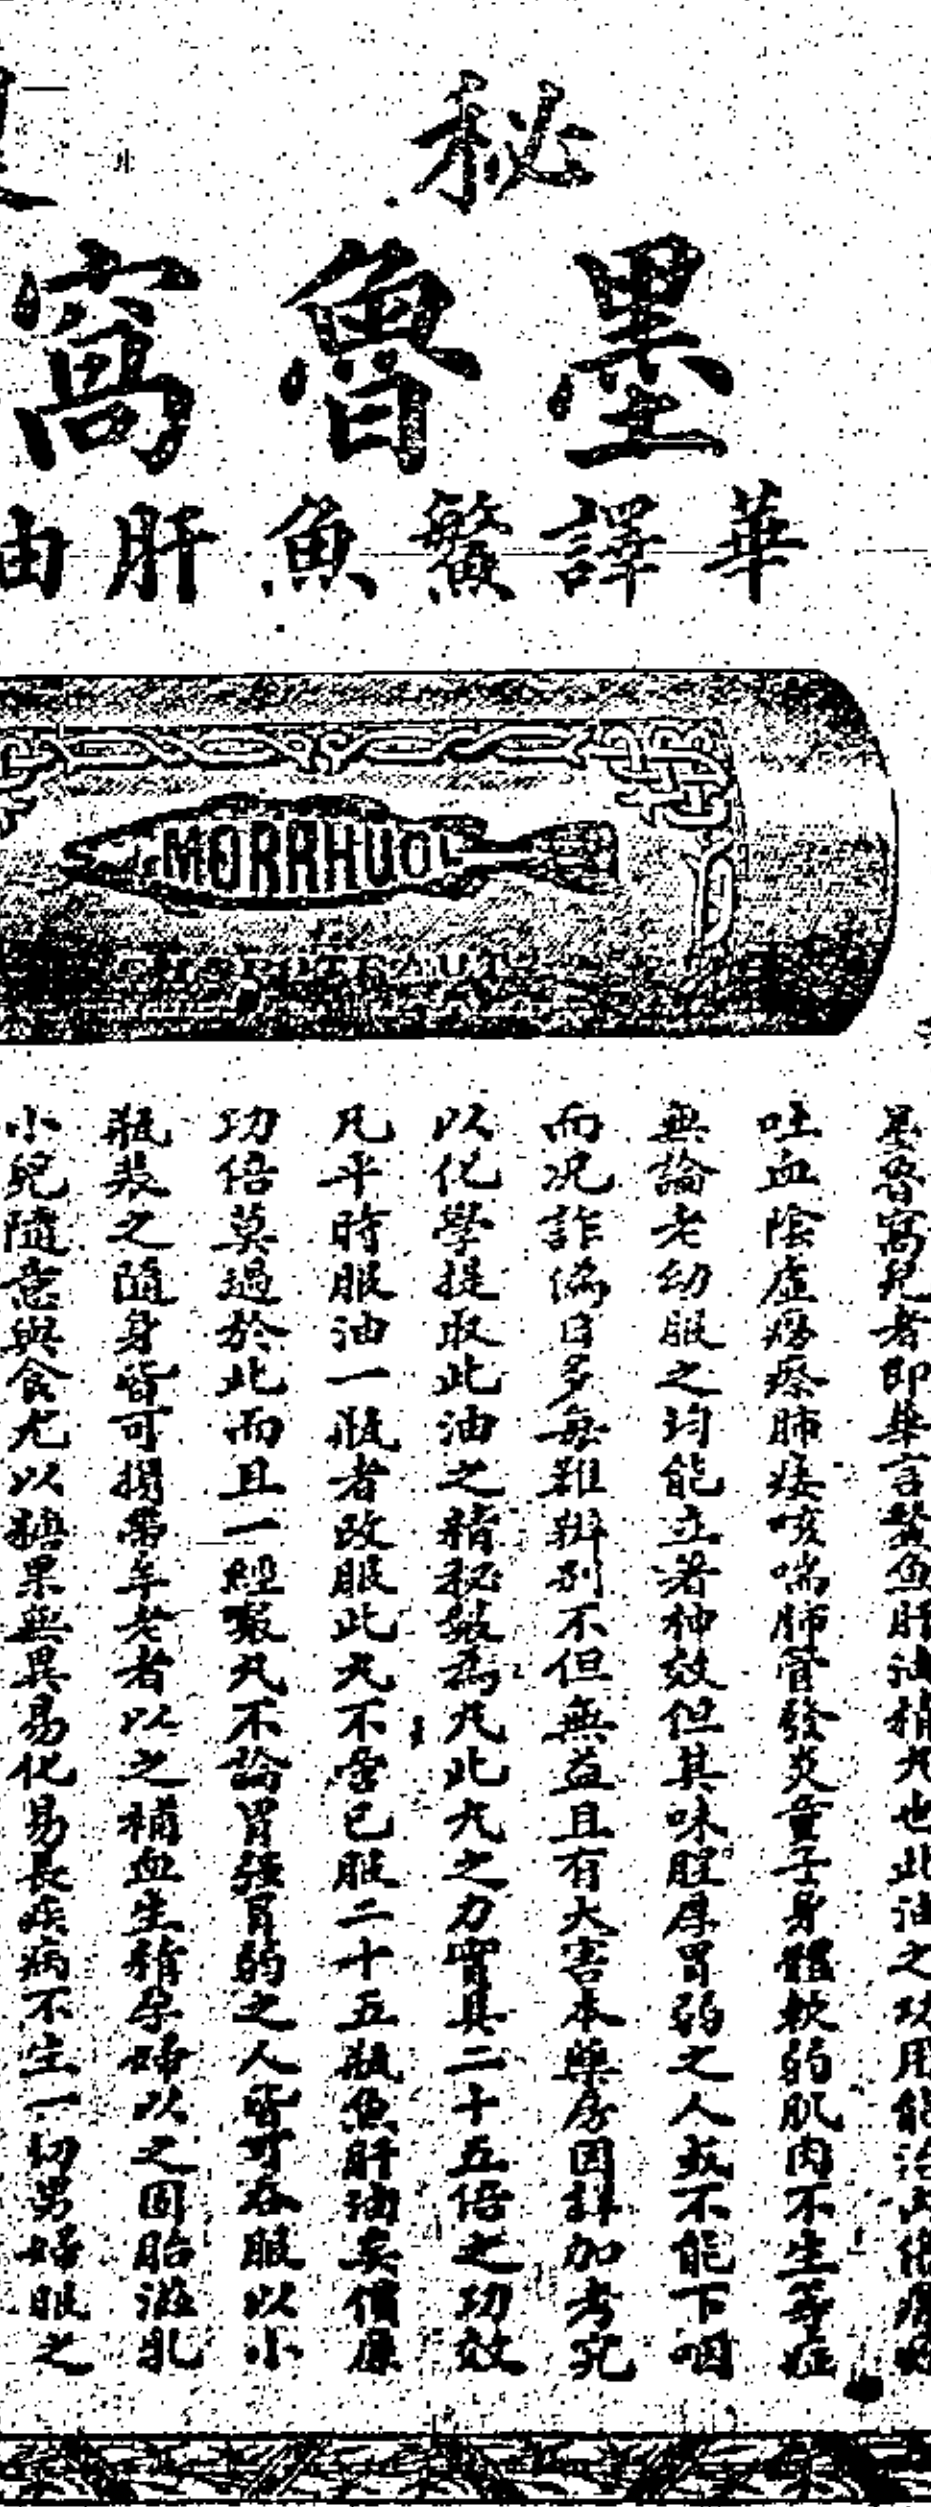 秘
墨魯窩
華譯鱉魚肝油
MORRHUOL
墨魯窩兒者即華言鱉魚肝油精丸也此油之功用能治
吐血陰虛癆瘵肺痿咳喘肺管發炎童子身體軟弱肌肉不生等症
無論老幼服之均能立著神效但其味腥厚胃弱之人或不能下咽
而况詐偽日多每難辨别不但無益且有大害本藥房因詳加考究
以化學提取此油之精秘製為丸此丸之力實具二十五倍之功效
凡平時服油一瓶者改服此丸不啻已服二十五瓶魚肝油矣價廉
功倍莫過於此而且一經製丸不論胃强胃弱之人皆可吞服以小
瓶装之隨身皆可攜帶年老者以之補血生精孕婦以之固胎滋乳
小兒隨意與食尤以糖果無異易化易長疾病不生一切男婦服之